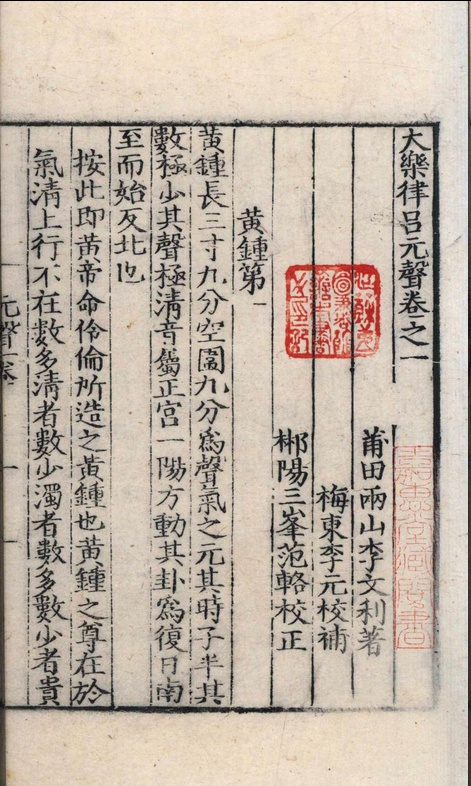 大樂律呂元聲卷之一
莆田兩山李文利著
梅東李元校補
郴陽三峯范輅校正
黃鍾第一
黃鍾長三寸九分空圍九分為聲氣之元其時子半其
數極少其聲極清音屬正宮一陽方動其卦為復日南
至而始反北也
按此即黃帝命伶倫所造之黃鍾也黃鍾之尊在於
氣清上行不在數多清者數少濁者數多數少者貴
元聲卷一
一